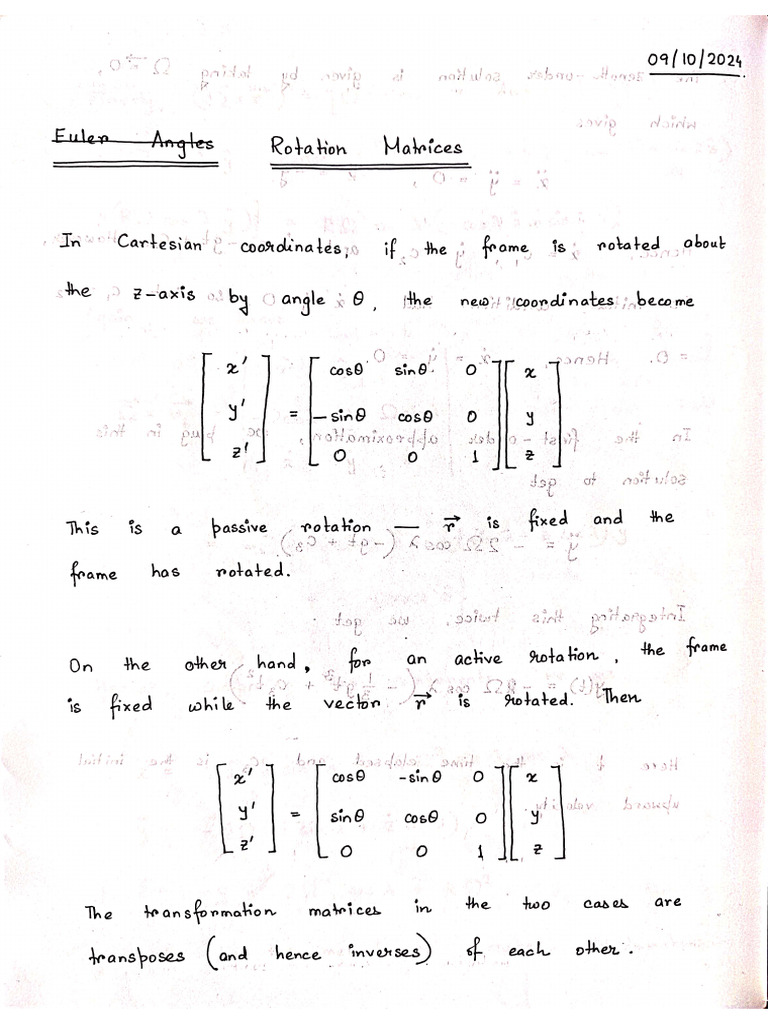 09/10/2024
Euler Angles Rotation Matrices
In Cartesian coordinates, if the frame is rotated about
the z-axis by angle θ, the new coordinates become
[x' y' z'] = [cosθ sinθ 0; -sinθ cosθ 0; 0 0 1] [x y z]
This is a passive rotation — r⃗ is fixed and the
frame has rotated.
On the other hand, for an active rotation, the frame
is fixed while the vector r⃗ is rotated. Then
[x' y' z'] = [cosθ -sinθ 0; sinθ cosθ 0; 0 0 1] [x y z]
The transformation matrices in the two cases are
transposes (and hence inverses) of each other.